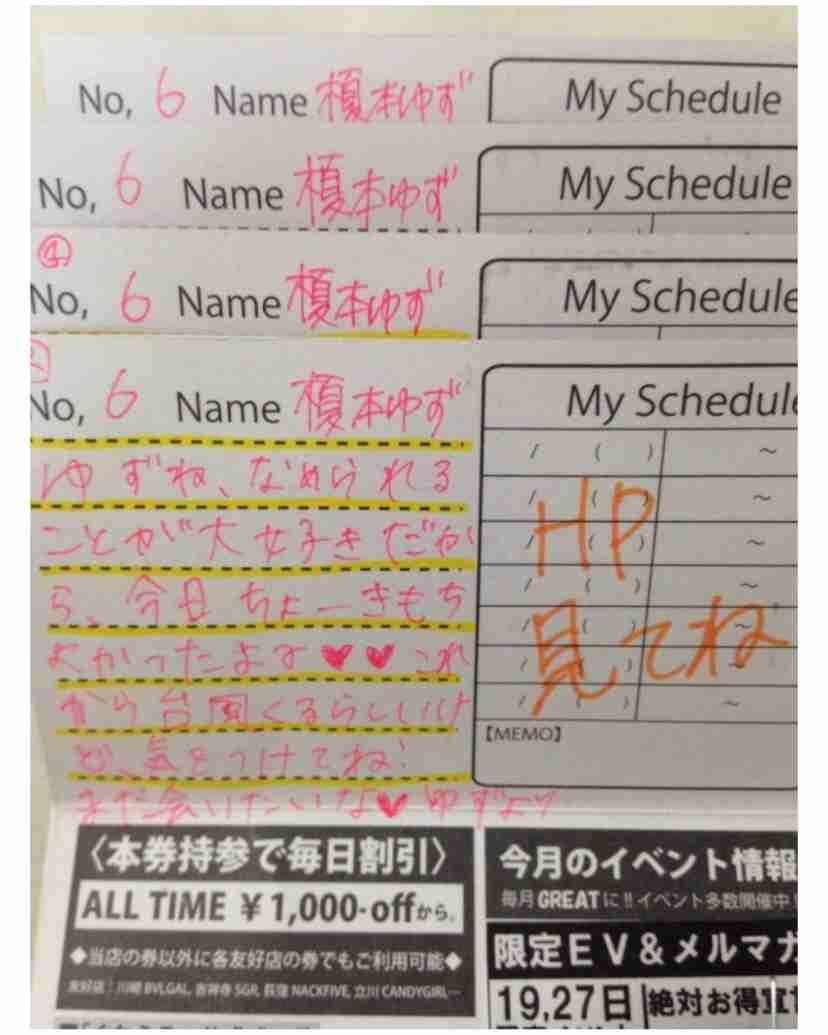 No, 6 Name 榎本ゆず My Schedule
No, 6 Name 榎本ゆず My Schedule
④
No, 6 Name 榎本ゆず My Schedule
No, 6 Name 榎本ゆず My Schedule
ゆずね、なめられる
ことが大好きだか
ら、今日ちょーきもち
よかったよす♥♥これ
から台風くるらしいけ
ど、気をつけてね!
また会いたいな♥ゆずより
HP
見てね
【MEMO】
〈本券持参で毎日割引〉
ALL TIME ¥1,000-offから。
◆当店の券以外に各友好店の券でもご利用可能◆
友好店:川崎 BVLGAL, 吉祥寺 SGR, 荻窪 NACKFIVE, 立川 CANDYGIRL…
今月のイベント情報
毎月GREATに!!イベント多数開催中!
限定EV&メルマガ
19,27日 絶対お得宣